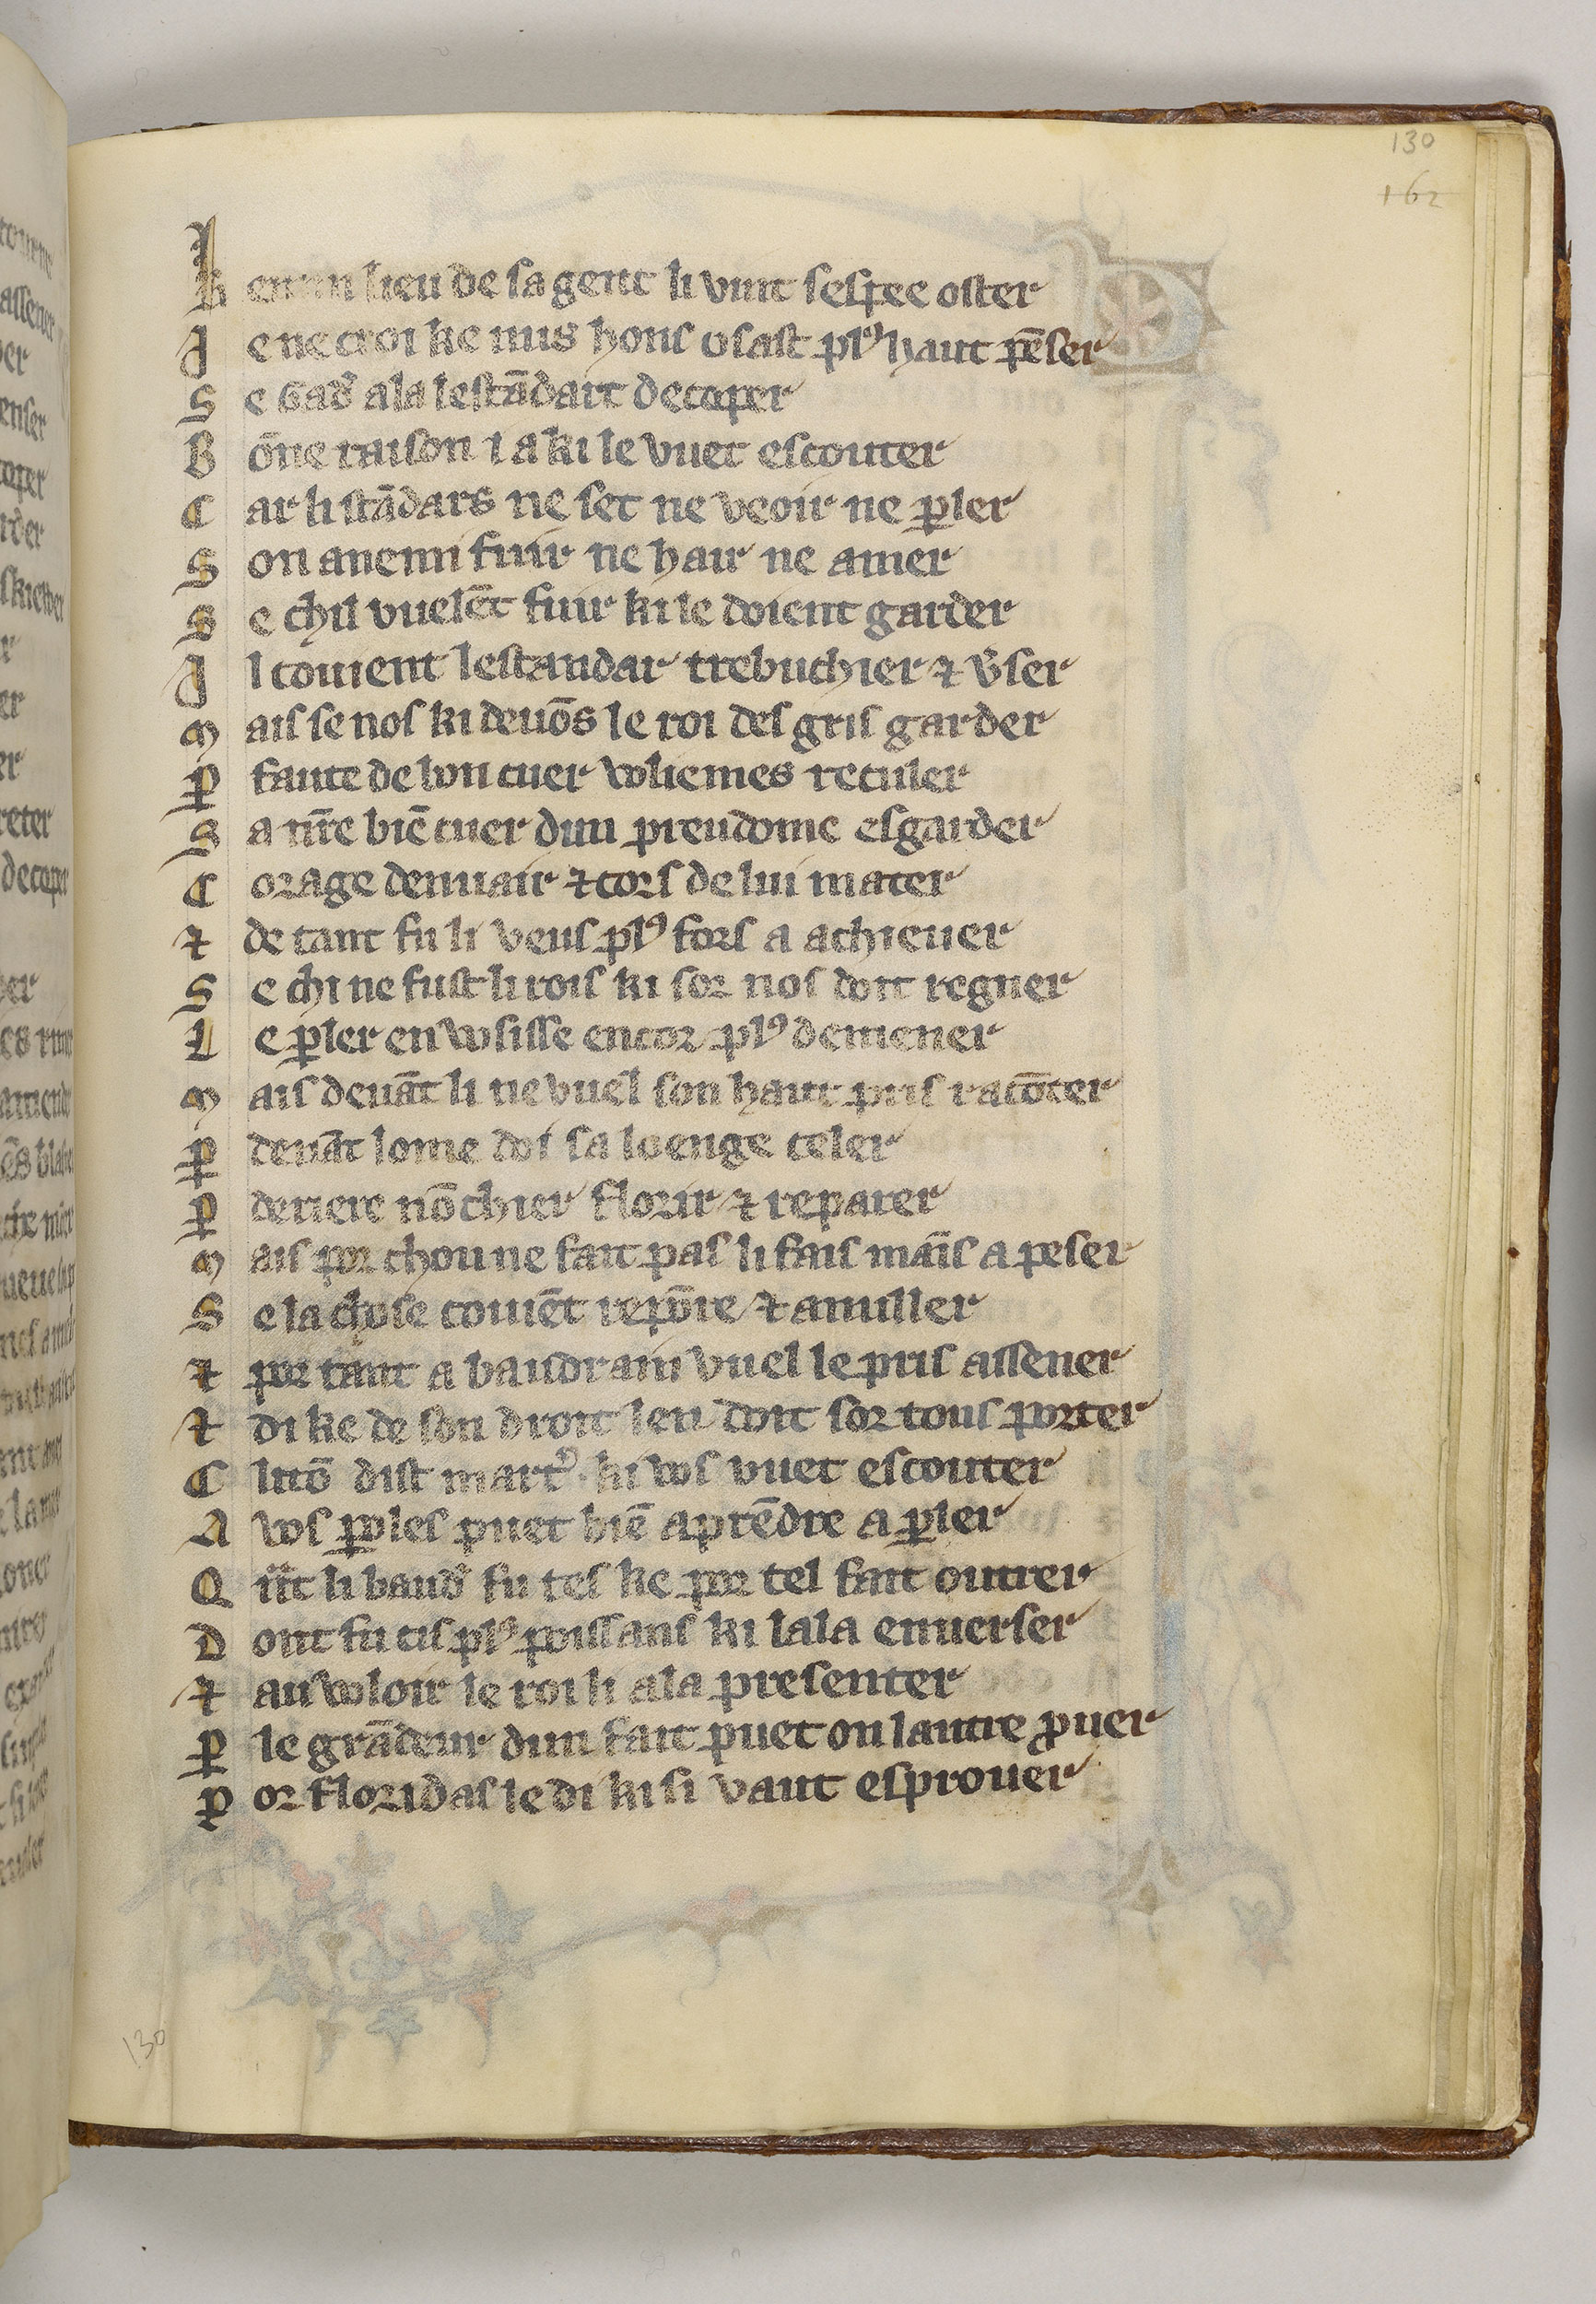 130
162
K en mi lieu de sa gent li vint sespee oster
J e ne croi ke nus hons osast plꝰ haut pēser
S e Gad᷑ ala lestādart decoper
B ōne raison i a ki le vuet escouter
C ar li stādars ne set ne veoir ne ꝑler
S on anemi fuir ne hair ne amer
S e chil vuelēt fuir ki le doient garder
J l couient lestandar trebuchier ⁊ v᷑ser
M ais se nos ki deuōs le roi des gris garder
ꝑ faute de bon cuer voliemes reculer
S a nr̄e biē cuer dun preudome esgarder
C orage denuair ⁊ cors de lui mater
⁊ de tant fu li veus plꝰ fors a achieuer
S e chi ne fust li rois ki sor nos doit regner
L e ꝑler en vosisse encor plꝰ demener
M ais deuāt li ne vuel son haut pris racōter
ꝑ deuāt lome doi sa loenge celer
ꝑ deriere nōchier florir ⁊ reparer
M ais por chou ne fait pas li fais mains a peser
S e la chose couiēt repōre ⁊ anuller
⁊ por tant a baudrain vuel le pris assener
⁊ di ke de son droit len doit sor tous porter
C litō dist mart᷑ ki vos vuet escouter
A vos ꝑoles puet biē aprēdre a ꝑler
Q n̄t li baud᷑ fu tes ke por tel fait outrer
D ont fu cis plꝰ poissans ki lala enuerser
⁊ au voloir le roi li ala presenter
ꝑ le grādeur dun fait puet on lautre ꝓuer
P or floridas le di ki si vaut esprouer
130